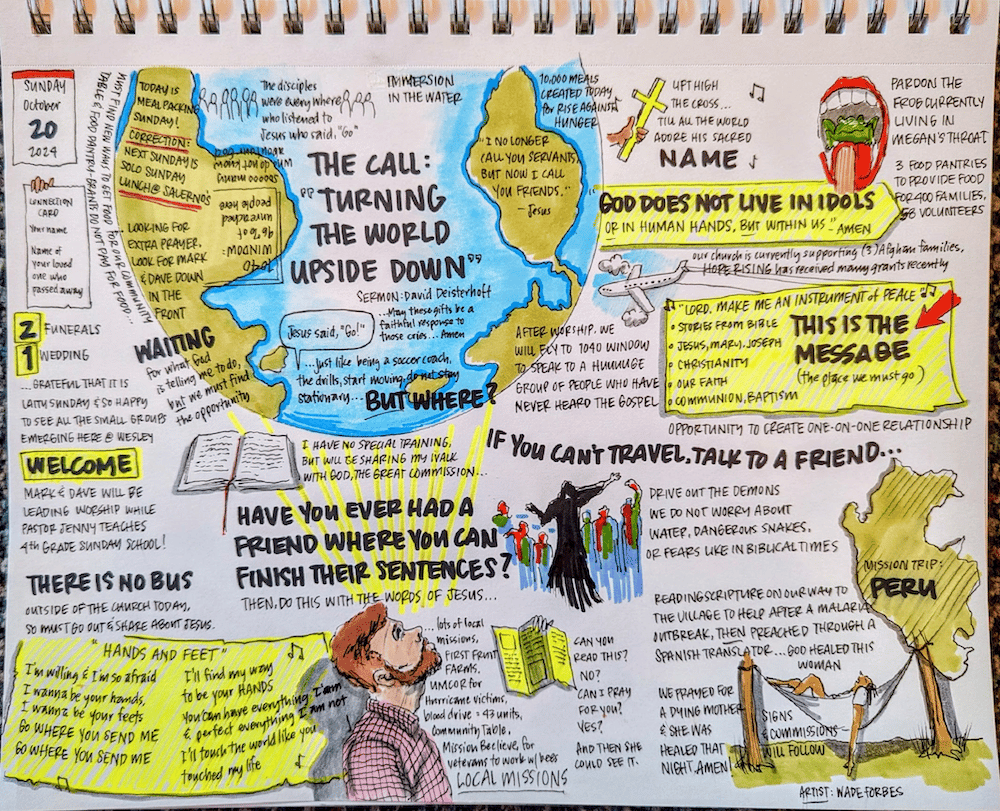 SUNDAY
October
20
2024
CONNECTION
CARD
Your name
Name of
your loved
one who
passed away
MUST FIND NEW WAYS TO GET FOOD FOR OUR COMMUNITY
TABLE & FOOD PANTRY-GRANTS DO NOT PAY FOR FOOD...
2 FUNERALS
1 WEDDING
...GRATEFUL THAT IT IS
LAITY SUNDAY & SO HAPPY
TO SEE ALL THE SMALL GROUPS
EMERGING HERE @ WESLEY
WELCOME
MARK & DAVE WILL BE
LEADING WORSHIP WHILE
PASTOR JENNY TEACHES
4th GRADE SUNDAY SCHOOL!
THERE IS NO BUS
OUTSIDE OF THE CHURCH TODAY,
SO MUST GO OUT & SHARE ABOUT JESUS.
"HANDS AND FEET"
I'm willing & I'm so afraid
I wanna be your hands,
I wanna be your feets
GO WHERE YOU SEND ME
GO WHERE YOU SEND ME
I'll find my way
to be your HANDS
you can have everything I am
& perfect everything I am not
I'll touch the world like you
touched my life
TODAY IS
MEAL PACKING
SUNDAY!
CORRECTION:
NEXT SUNDAY IS
SOLO SUNDAY
LUNCH @ SALERNO'S
LOOKING FOR
EXTRA PRAYER,
LOOK FOR MARK
& DAVE DOWN
IN THE
FRONT
WAITING
for what God
is telling me to do,
but we must find
the opportunity
The disciples
were everywhere
who listened to
Jesus who said, "Go"
IMMERSION
IN THE WATER
10,000 MEALS
CREATED TODAY
for RISE AGAINST
HUNGER
10/40
WINDOW:
unreached
people here
who do not know
THE CALL:
"TURNING
THE WORLD
UPSIDE DOWN"
SERMON: David Deisterhoft
...May these gifts be a
faithful response to
those cries... Amen
Jesus said, "Go!"
...just like being a soccer coach,
the drills, start moving, do not stay
stationary...
BUT WHERE?
"I NO LONGER
CALL YOU SERVANTS,
BUT NOW I CALL
YOU FRIENDS."
- Jesus
LIFT HIGH
THE CROSS...
TILL ALL THE WORLD
ADORE HIS SACRED
NAME
PARDON THE
FROG CURRENTLY
LIVING IN
MEGAN'S THROAT
3 FOOD PANTRIES
TO PROVIDE FOOD
FOR 400 FAMILIES,
58 VOLUNTEERS
"GOD DOES NOT LIVE IN IDOLS
OR IN HUMAN HANDS, BUT WITHIN US." AMEN
our church is currently supporting (3) Afghan families,
HOPE RISING has received many grants recently
AFTER WORSHIP, WE
WILL FLY TO 1040 WINDOW
TO SPEAK TO A HUUUUGE
GROUP OF PEOPLE WHO HAVE
NEVER HEARD THE GOSPEL
"LORD, MAKE ME AN INSTRUMENT of PEACE"
STORIES FROM BIBLE
JESUS, MARY, JOSEPH
CHRISTIANITY
OUR FAITH
COMMUNION, BAPTISM
THIS IS THE
MESSAGE
(the place we must go)
OPPORTUNITY TO CREATE ONE-ON-ONE RELATIONSHIP
IF YOU CAN'T TRAVEL, TALK TO A FRIEND...
I HAVE NO SPECIAL TRAINING,
BUT WILL BE SHARING MY WALK
WITH GOD, THE GREAT COMMISSION...
HAVE YOU EVER HAD A
FRIEND WHERE YOU CAN
FINISH THEIR SENTENCES?
THEN, DO THIS WITH THE WORDS OF JESUS...
DRIVE OUT THE DEMONS
WE DO NOT WORRY ABOUT
WATER, DANGEROUS SNAKES,
OR FEARS LIKE IN BIBLICAL TIMES
MISSION TRIP:
PERU
READING SCRIPTURE ON OUR WAY TO
THE VILLAGE TO HELP AFTER A MALARIA
OUTBREAK, THEN PREACHED THROUGH A
SPANISH TRANSLATOR... GOD HEALED THIS
WOMAN
...lots of local
missions,
FIRST FRUIT
FARMS,
UMCOR for
Hurricane victims,
blood drive = 43 units,
Community Table,
Mission Beelieve, for
veterans to work w/ bees
LOCAL MISSIONS
CAN YOU
READ THIS?
NO?
CAN I PRAY
FOR YOU?
YES?
AND THEN SHE
COULD SEE IT.
WE PRAYED FOR
A DYING MOTHER
& SHE WAS
HEALED THAT
NIGHT. AMEN
SIGNS
& COMMISSIONS
WILL FOLLOW
ARTIST: WADE FORBES